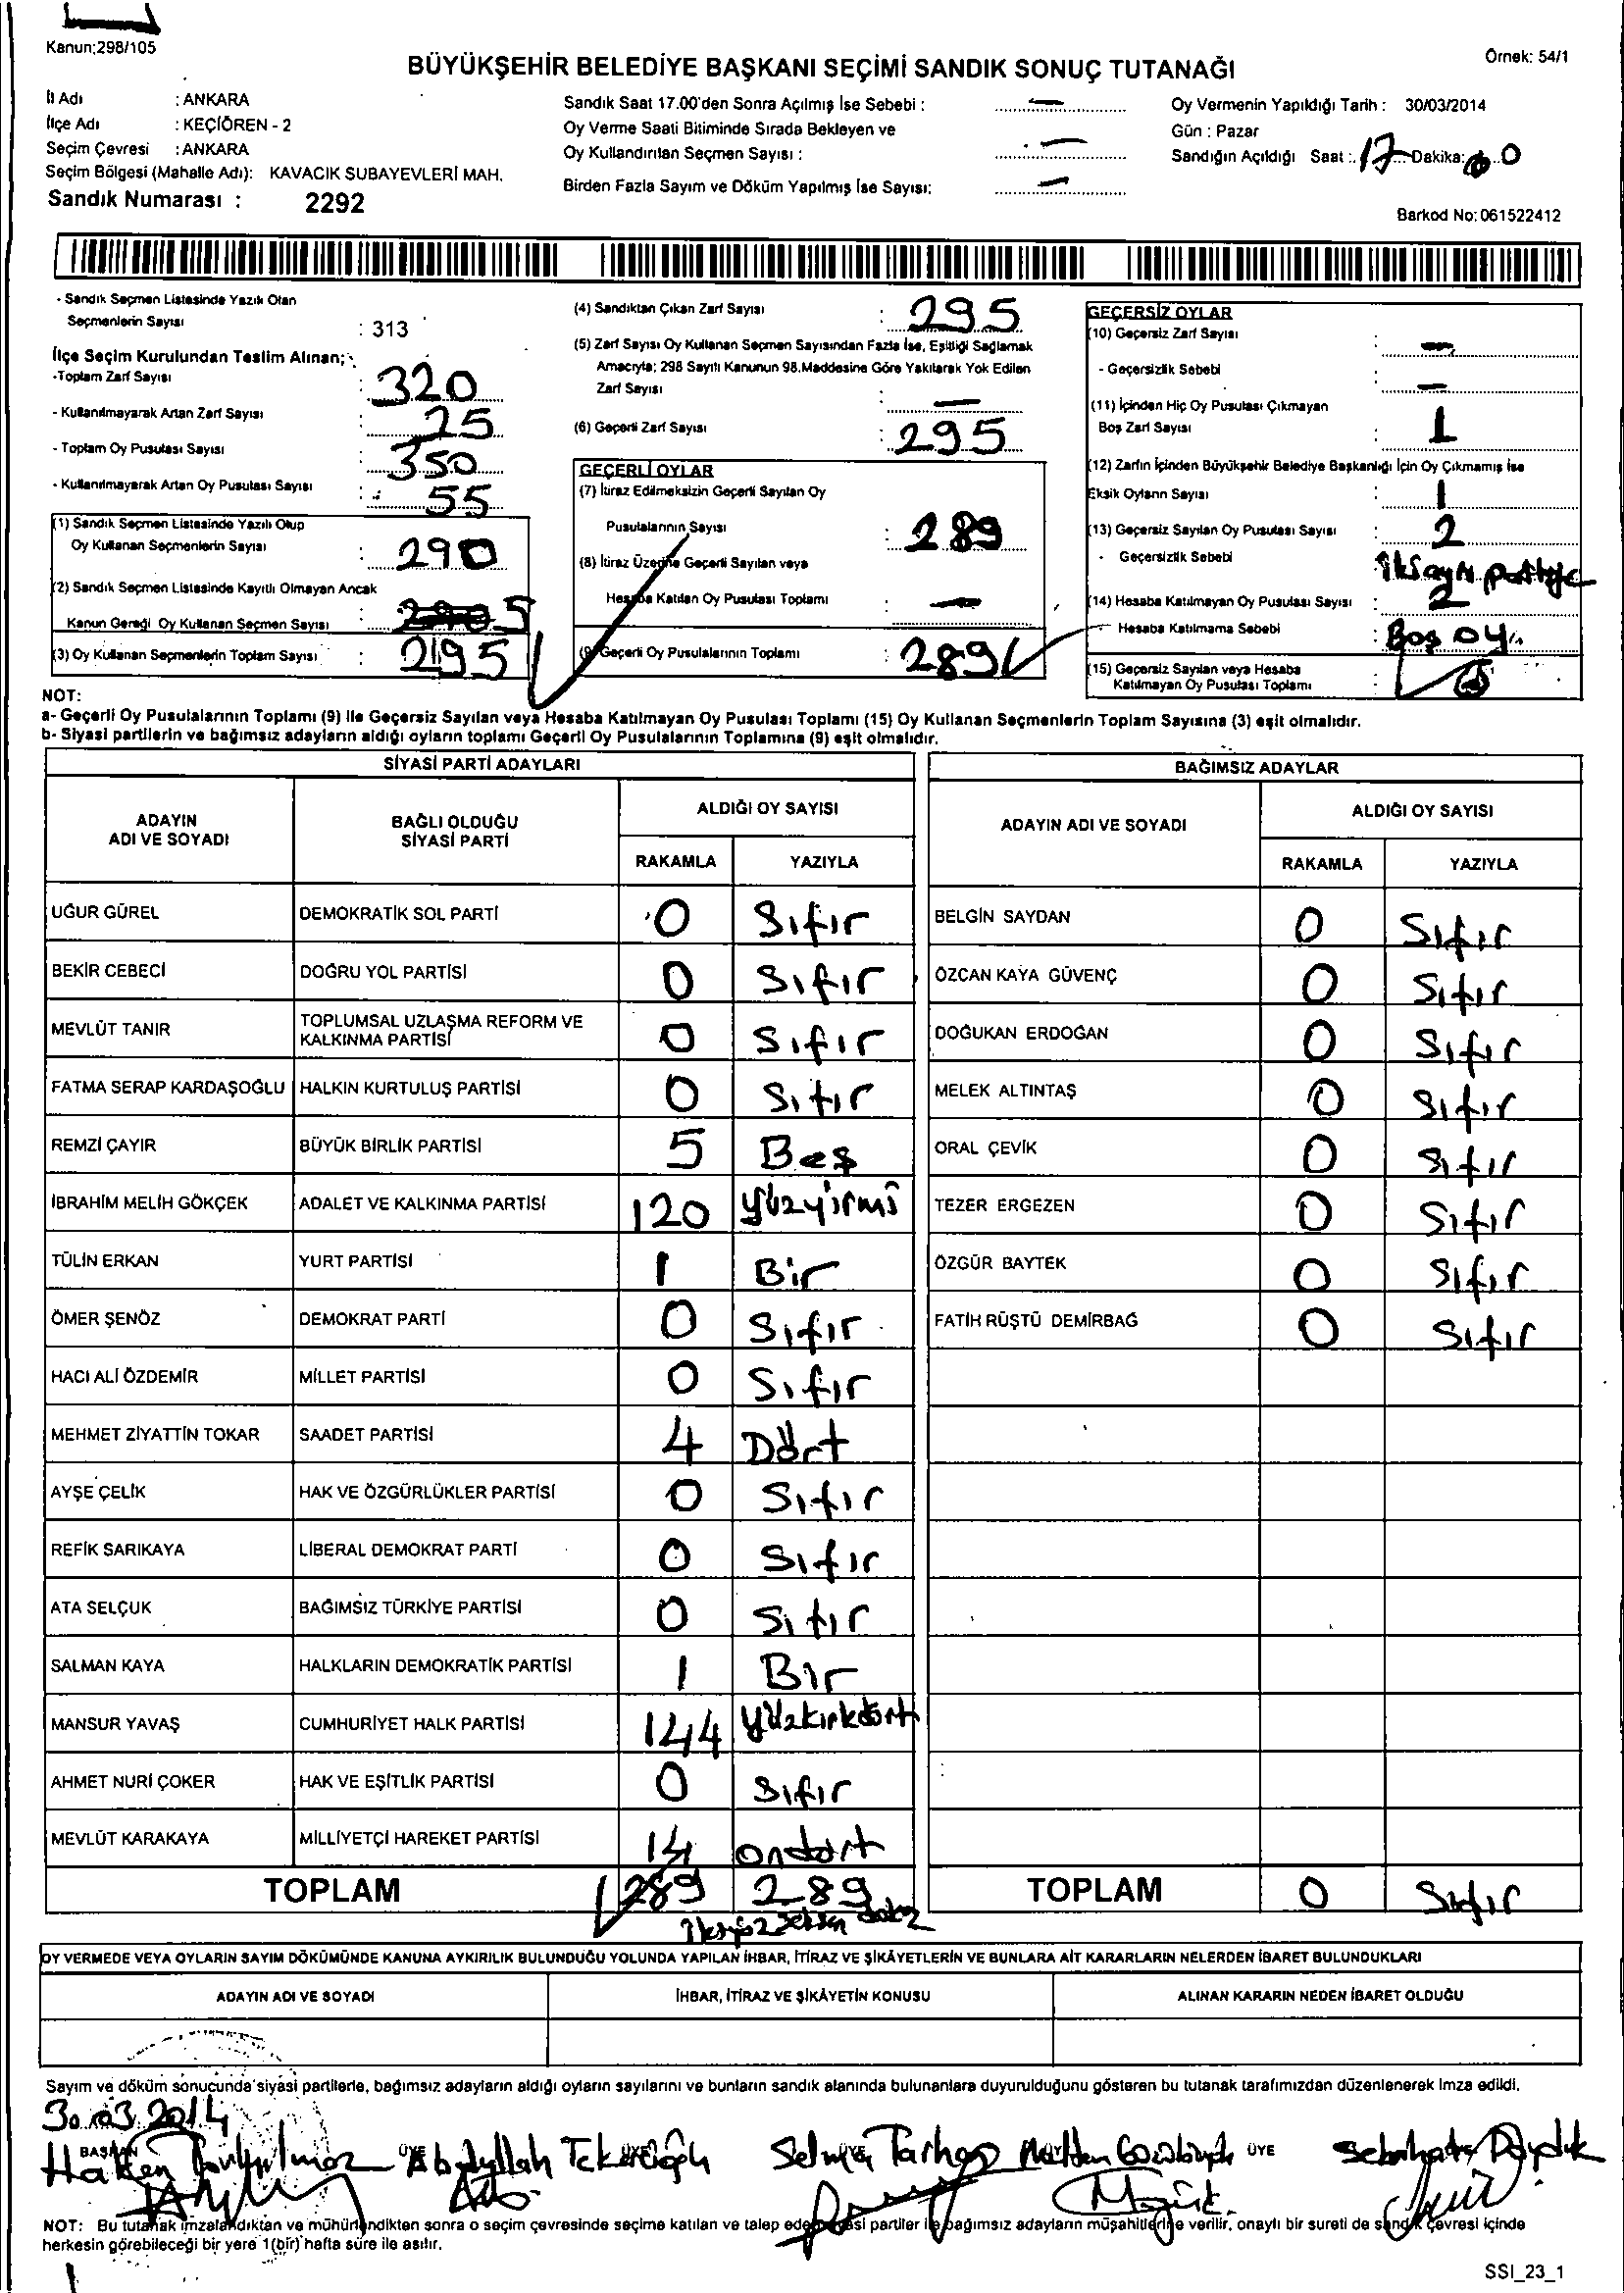 Kanun;298/105
Örnek: 54/1
BÜYÜKŞEHİR BELEDİYE BAŞKANI SEÇİMİ SANDIK SONUÇ TUTANAĞI
İl Adı : ANKARA
İlçe Adı : KEÇİÖREN - 2
Seçim Çevresi : ANKARA
Seçim Bölgesi (Mahalle Adı): KAVACIK SUBAYEVLERİ MAH.
Sandık Numarası : 2292
Sandık Saat 17.00'den Sonra Açılmış İse Sebebi : —
Oy Verme Saati Bitiminde Sırada Bekleyen ve
Oy Kullandırılan Seçmen Sayısı : —
Birden Fazla Sayım ve Döküm Yapılmış İse Sayısı: —
Oy Vermenin Yapıldığı Tarih : 30/03/2014
Gün : Pazar
Sandığın Açıldığı Saat : 17 Dakika: 0
Barkod No: 061522412
- Sandık Seçmen Listesinde Yazılı Olan
Seçmenlerin Sayısı : 313
İlçe Seçim Kurulundan Teslim Alınan;
-Toplam Zarf Sayısı : 320
- Kullanılmayarak Artan Zarf Sayısı : 25
- Toplam Oy Pusulası Sayısı : 350
- Kullanılmayarak Artan Oy Pusulası Sayısı : 55
(1) Sandık Seçmen Listesinde Yazılı Olup
Oy Kullanan Seçmenlerin Sayısı : 290
(2) Sandık Seçmen Listesinde Kayıtlı Olmayan Ancak
Kanun Gereği Oy Kullanan Seçmen Sayısı : 5
(3) Oy Kullanan Seçmenlerin Toplam Sayısı : 295
(4) Sandıktan Çıkan Zarf Sayısı : 295
(5) Zarf Sayısı Oy Kullanan Seçmen Sayısından Fazla İse, Eşitliği Sağlamak
Amacıyla; 298 Sayılı Kanunun 98.Maddesine Göre Yakılarak Yok Edilen
Zarf Sayısı : —
(6) Geçerli Zarf Sayısı : 295
GEÇERLİ OYLAR
(7) İtiraz Edilmeksizin Geçerli Sayılan Oy
Pusulalarının Sayısı : 289
(8) İtiraz Üzerine Geçerli Sayılan veya
Hesaba Katılan Oy Pusulası Toplamı : —
(9) Geçerli Oy Pusulalarının Toplamı : 289
GEÇERSİZ OYLAR
(10) Geçersiz Zarf Sayısı : —
- Geçersizlik Sebebi : —
(11) İçinden Hiç Oy Pusulası Çıkmayan
Boş Zarf Sayısı : 1
(12) Zarfın İçinden Büyükşehir Belediye Başkanlığı İçin Oy Çıkmamış İse
Eksik Oyların Sayısı : 1
(13) Geçersiz Sayılan Oy Pusulası Sayısı : 2
- Geçersizlik Sebebi : iki ayrı partiye
(14) Hesaba Katılmayan Oy Pusulası Sayısı : 2
- Hesaba Katılmama Sebebi : Boş oy
(15) Geçersiz Sayılan veya Hesaba
Katılmayan Oy Pusulası Toplamı :
NOT:
a- Geçerli Oy Pusulalarının Toplamı (9) ile Geçersiz Sayılan veya Hesaba Katılmayan Oy Pusulası Toplamı (15) Oy Kullanan Seçmenlerin Toplam Sayısına (3) eşit olmalıdır.
b- Siyasi partilerin ve bağımsız adayların aldığı oyların toplamı Geçerli Oy Pusulalarının Toplamına (9) eşit olmalıdır.
SİYASİ PARTİ ADAYLARI
ADAYIN ADI VE SOYADI BAĞLI OLDUĞU SİYASİ PARTİ ALDIĞI OY SAYISI
RAKAMLA YAZIYLA
UĞUR GÜREL DEMOKRATİK SOL PARTİ 0 Sıfır
BEKİR CEBECİ DOĞRU YOL PARTİSİ 0 Sıfır
MEVLÜT TANIR TOPLUMSAL UZLAŞMA REFORM VE KALKINMA PARTİSİ 0 Sıfır
FATMA SERAP KARDAŞOĞLU HALKIN KURTULUŞ PARTİSİ 0 Sıfır
REMZİ ÇAYIR BÜYÜK BİRLİK PARTİSİ 5 Beş
İBRAHİM MELİH GÖKÇEK ADALET VE KALKINMA PARTİSİ 120 yüzyirmi
TÜLİN ERKAN YURT PARTİSİ 1 Bir
ÖMER ŞENÖZ DEMOKRAT PARTİ 0 Sıfır
HACI ALİ ÖZDEMİR MİLLET PARTİSİ 0 Sıfır
MEHMET ZİYATTİN TOKAR SAADET PARTİSİ 4 Dört
AYŞE ÇELİK HAK VE ÖZGÜRLÜKLER PARTİSİ 0 Sıfır
REFİK SARIKAYA LİBERAL DEMOKRAT PARTİ 0 Sıfır
ATA SELÇUK BAĞIMSIZ TÜRKİYE PARTİSİ 0 Sıfır
SALMAN KAYA HALKLARIN DEMOKRATİK PARTİSİ 1 Bir
MANSUR YAVAŞ CUMHURİYET HALK PARTİSİ 144 yüzkırkdört
AHMET NURİ ÇOKER HAK VE EŞİTLİK PARTİSİ 0 Sıfır
MEVLÜT KARAKAYA MİLLİYETÇİ HAREKET PARTİSİ 14 ondört
TOPLAM 289 289
BAĞIMSIZ ADAYLAR
ADAYIN ADI VE SOYADI ALDIĞI OY SAYISI
RAKAMLA YAZIYLA
BELGİN SAYDAN 0 Sıfır
ÖZCAN KAYA GÜVENÇ 0 Sıfır
DOĞUKAN ERDOĞAN 0 Sıfır
MELEK ALTINTAŞ 0 Sıfır
ORAL ÇEVİK 0 Sıfır
TEZER ERGEZEN 0 Sıfır
ÖZGÜR BAYTEK 0 Sıfır
FATİH RÜŞTÜ DEMİRBAĞ 0 Sıfır
TOPLAM 0 Sıfır
OY VERMEDE VEYA OYLARIN SAYIM DÖKÜMÜNDE KANUNA AYKIRILIK BULUNDUĞU YOLUNDA YAPILAN İHBAR, İTİRAZ VE ŞİKÂYETLERİN VE BUNLARA AİT KARARLARIN NELERDEN İBARET BULUNDUKLARI
ADAYIN ADI VE SOYADI İHBAR, İTİRAZ VE ŞİKÂYETİN KONUSU ALINAN KARARIN NEDEN İBARET OLDUĞU
Sayım ve döküm sonucunda siyasi partilerle, bağımsız adayların aldığı oyların sayılarını ve bunların sandık alanında bulunanlara duyurulduğunu gösteren bu tutanak tarafımızdan düzenlenerek imza edildi.
30.03.2014
BAŞKAN ÜYE ÜYE ÜYE ÜYE ÜYE
Hakan Abdullah Selma Tarhan
NOT: Bu tutanak imzalandıktan ve mühürlendikten sonra o seçim çevresinde seçime katılan ve talep eden siyasi partiler ile bağımsız adayların müşahitlerine verilir, onaylı bir sureti de sandık çevresi içinde
herkesin görebileceği bir yere 1(bir) hafta süre ile asılır.
SSI_23_1